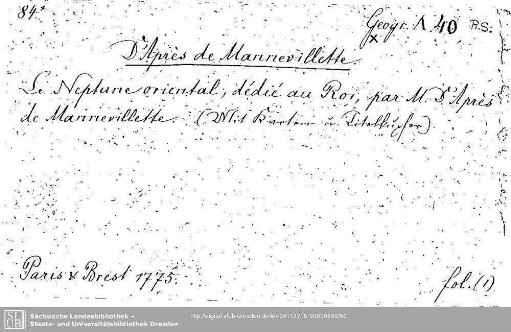 84.
Geogr. A 40 R.S.
D'Après de Mannevillette.
Le Neptune oriental, dédié au Roi, par M. D'Après
de Mannevillette. (Mit Karten u. Titelkupfer)
Paris & Brest 1775.
fol. (1)
Sächsische Landesbibliothek –
Staats- und Universitätsbibliothek Dresden